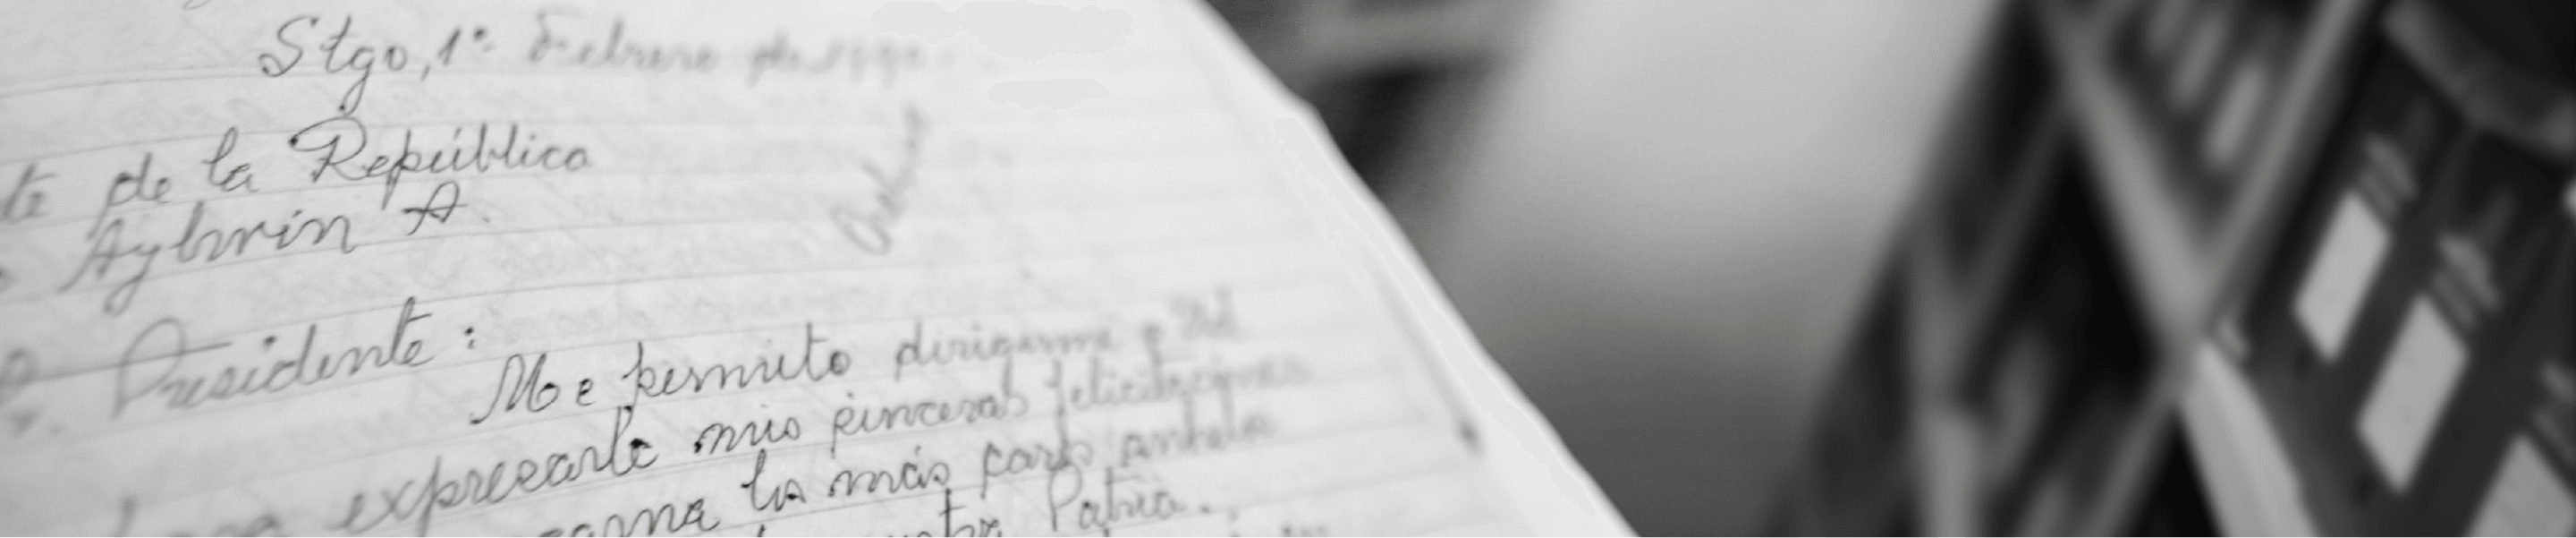 Stgo, 1º Febrero de 1990.
te de la República
Aylwin A.
Presidente:
Me permito dirigirme a Ud
para expresarle mis sinceras felicitaciones
la más caro anhelo
Patria.